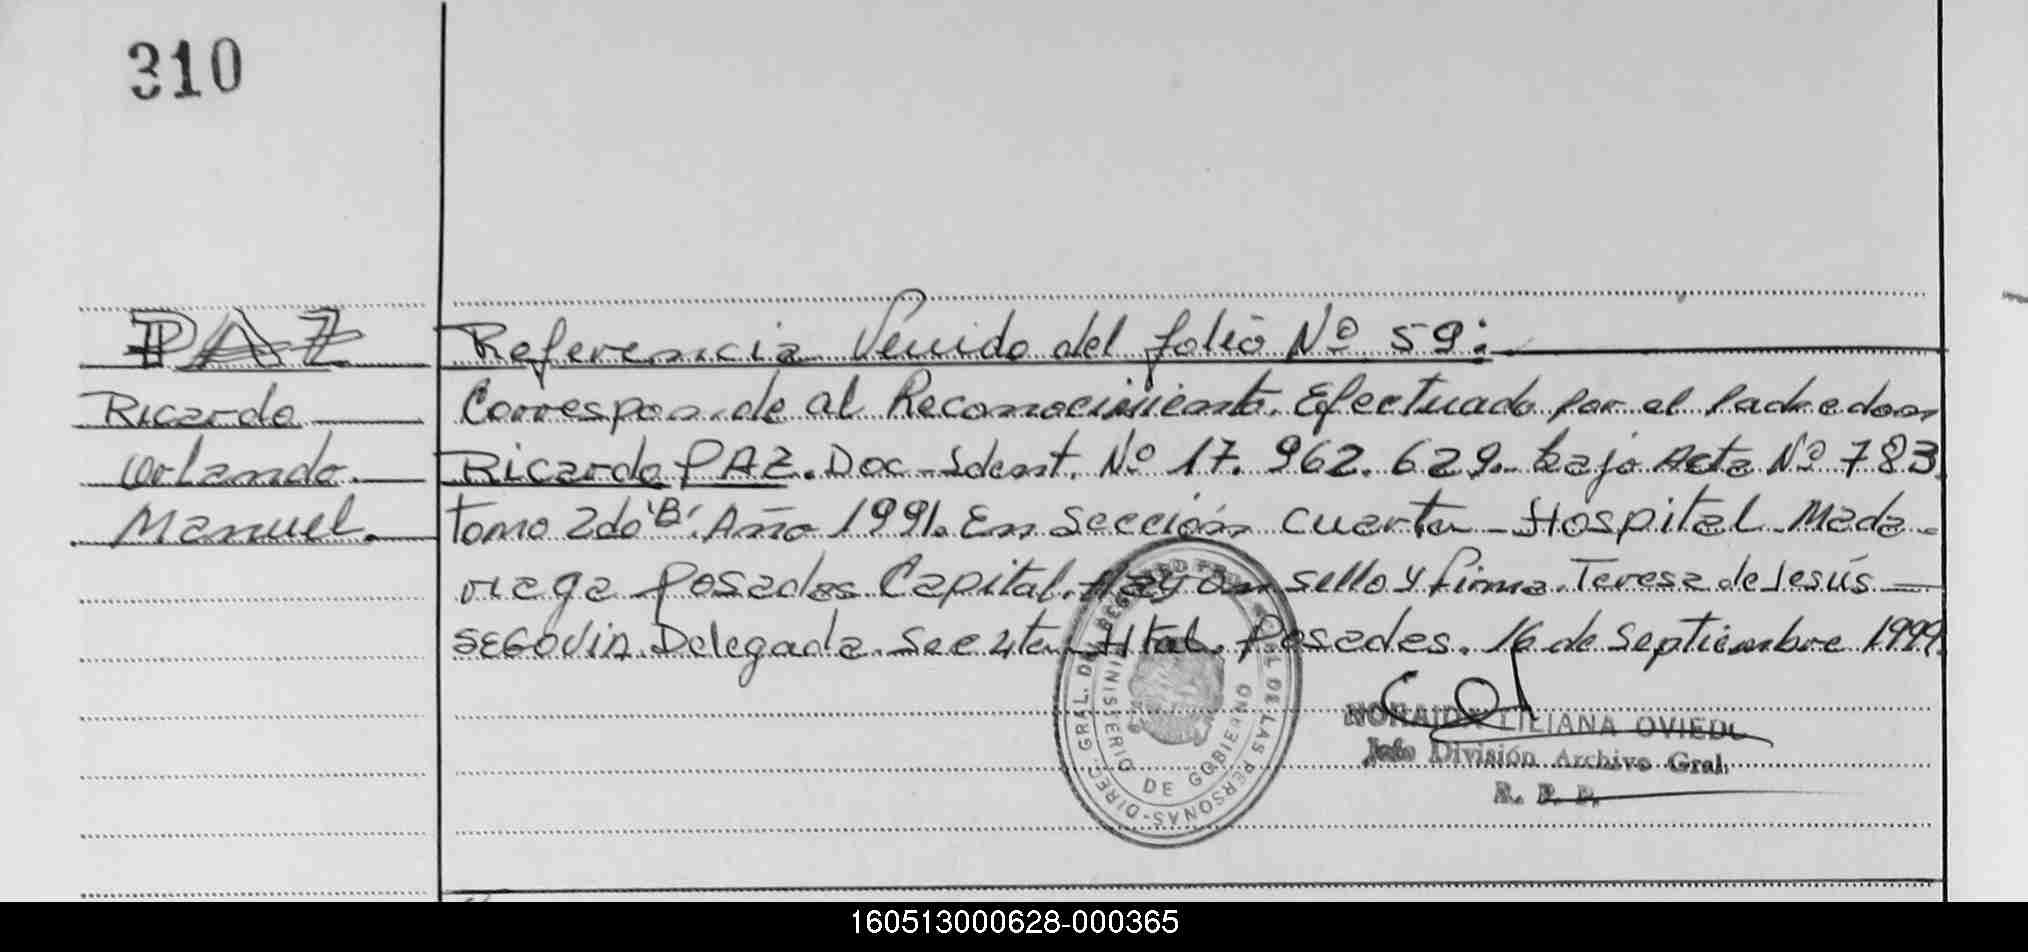 310
PAZ
Ricardo
Orlando
Manuel.
Referencia Venido del folio Nº 59:
Corresponde al Reconocimiento. Efectuado por el padre don
Ricardo PAZ. Doc-Ident. Nº 17.962.629. bajo Acta Nº 783
tomo 2do 'B'. Año 1991. En Sección cuarta-Hospital Mada-
riaga Posadas Capital. Hay un sello y firma. Teresa de Jesús
SEGOVIA. Delegada. Sec 4ta Htal. Posadas. 16 de septiembre 1999.
DIREC. GRAL. DEL REGISTRO PROVINCIAL DE LAS PERSONAS
MINISTERIO DE GOBIERNO
NORAIDA LILIANA OVIEDO
Jefe División Archivo Gral.
R. P. P.
160513000628-000365